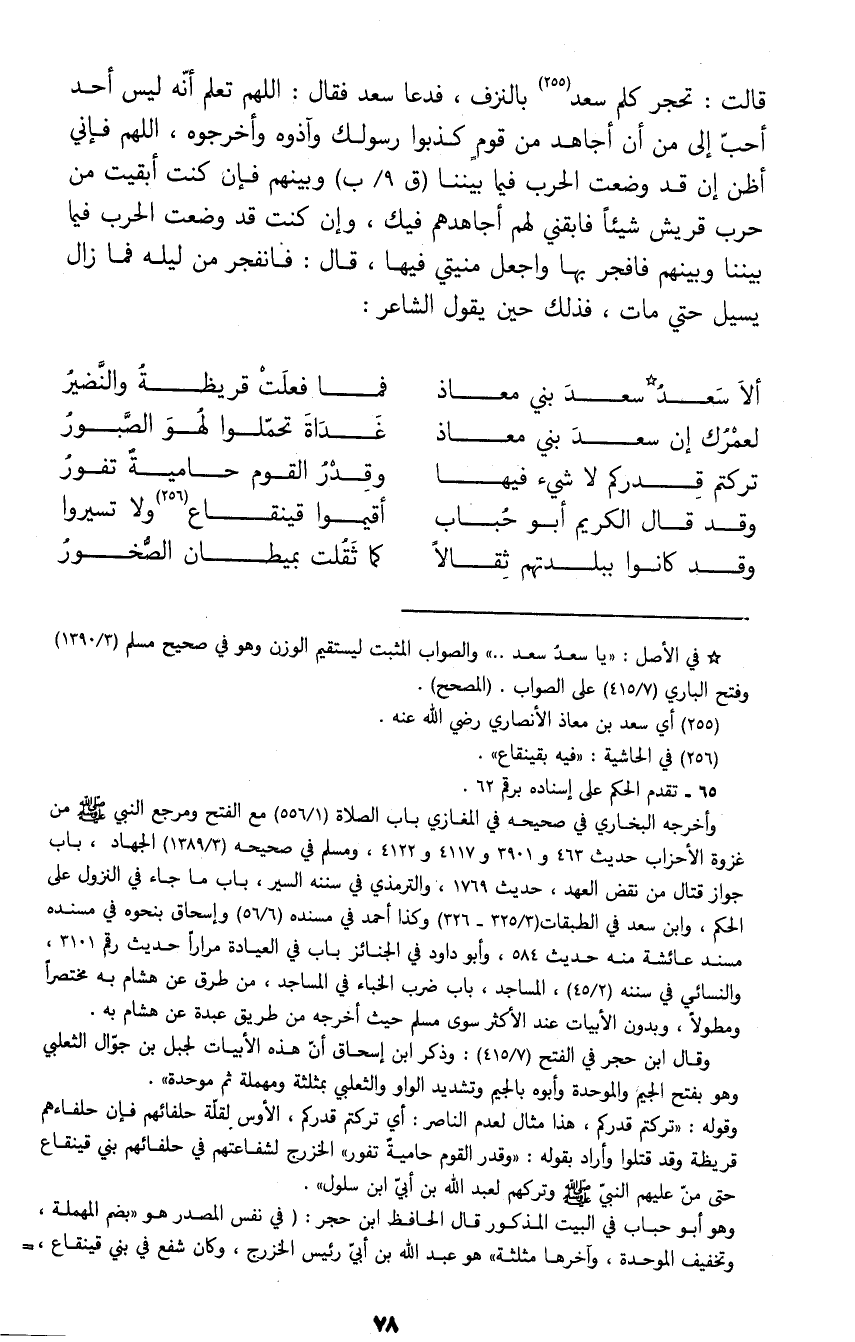 قالت : تحجر كلم سعد(٢٥٥) بالنزف ، فدعا سعد فقال : اللهم تعلم أنّه ليس أحد
أحبّ إلى من أن أجاهد من قومٍ كذبوا رسولك وآذوه وأخرجوه ، اللهم فإني
أظن إن قد وضعت الحرب فيما بيننا (ق ٩/ ب) وبينهم فإن كنت أبقيت من
حرب قريش شيئاً فابقني لهم أجاهدهم فيك ، وإن كنت قد وضعت الحرب فيما
بيننا وبينهم فافجر بها واجعل منيتي فيها ، قال : فانفجر من ليله فما زال
يسيل حتي مات ، فذلك حين يقول الشاعر :
ألاَ سَعدُ☆ سعدَ بني معاذ فما فعلَتْ قريظةُ والنَّضيرُ
لعمْرُك إن سعدَ بني معاذ غَدَاةَ تحمّلوا لهُوَ الصَّبورُ
تركتم قِدركم لا شيء فيها وقِدْرُ القوم حاميةٌ تفورُ
وقد قال الكريم أبو حُباب أقيموا قينقاع(٢٥٦) ولا تسيروا
وقد كانوا ببلدتهم ثِقالاً كما ثَقُلت بميطان الصُّخورُ
☆ في الأصل : «يا سعدُ سعد ..» والصواب المثبت ليستقيم الوزن وهو في صحيح مسلم (١٣٩٠/٣)
وفتح الباري (٤١٥/٧) على الصواب . (المصحح) .
(٢٥٥) أي سعد بن معاذ الأنصاري رضي الله عنه .
(٢٥٦) في الحاشية : «فيه بقينقاع» .
٦٥ ـ تقدم الحكم على إسناده برقم ٦٢ .
وأخرجه البخاري في صحيحه في المغازي باب الصلاة (٥٥٦/١) مع الفتح ومرجع النبي ﷺ من
غزوة الأحزاب حديث ٤٦٣ و ٣٩٠١ و ٤١١٧ و ٤١٢٢ ، ومسلم في صحيحه (١٣٨٩/٣) الجهاد ، باب
جواز قتال من نقض العهد ، حديث ١٧٦٩ ، والترمذي في سننه السير ، باب ما جاء في النزول على
الحكم ، وابن سعد في الطبقات(٣٢٥/٣ ـ ٣٢٦) وكذا أحمد في مسنده (٥٦/٦) وإسحاق بنحوه في مسنده
مسند عائشة منه حديث ٥٨٤ ، وأبو داود في الجنائز باب في العيادة مراراً حديث رقم ٣١٠١ ،
والنسائي في سننه (٤٥/٢) ، المساجد ، باب ضرب الخباء في المساجد ، من طرق عن هشام به مختصراً
ومطولاً ، وبدون الأبيات عند الأكثر سوى مسلم حيث أخرجه من طريق عبدة عن هشام به .
وقال ابن حجر في الفتح (٤١٥/٧) : وذكر ابن إسحاق أنّ هذه الأبيات لجبل بن جوّال الثعلبي
وهو بفتح الجيم والموحدة وأبوه بالجيم وتشديد الواو والثعلبي بمثلثة ومهملة ثم موحدة» .
وقوله : «تركتم قدركم ، هذا مثال لعدم الناصر : أي تركتم قدركم ، الأوس لقلّة حلفائهم فإن حلفاءهم
قريظة وقد قتلوا وأراد بقوله : «وقدر القوم حاميةٌ تفور» الخزرج لشفاعتهم في حلفائهم بني قينقاع
حتى منّ عليهم النبيّ ﷺ وتركهم لعبد الله بن أبيّ ابن سلول» .
وهو أبو حباب في البيت المذكور قال الحافظ ابن حجر : ( في نفس المصدر هو «بضم المهملة ،
وتخفيف الموحدة ، وآخرها مثلثة» هو عبد الله بن أبيّ رئيس الخزرج ، وكان شفع في بني قينقاع ، =
٧٨